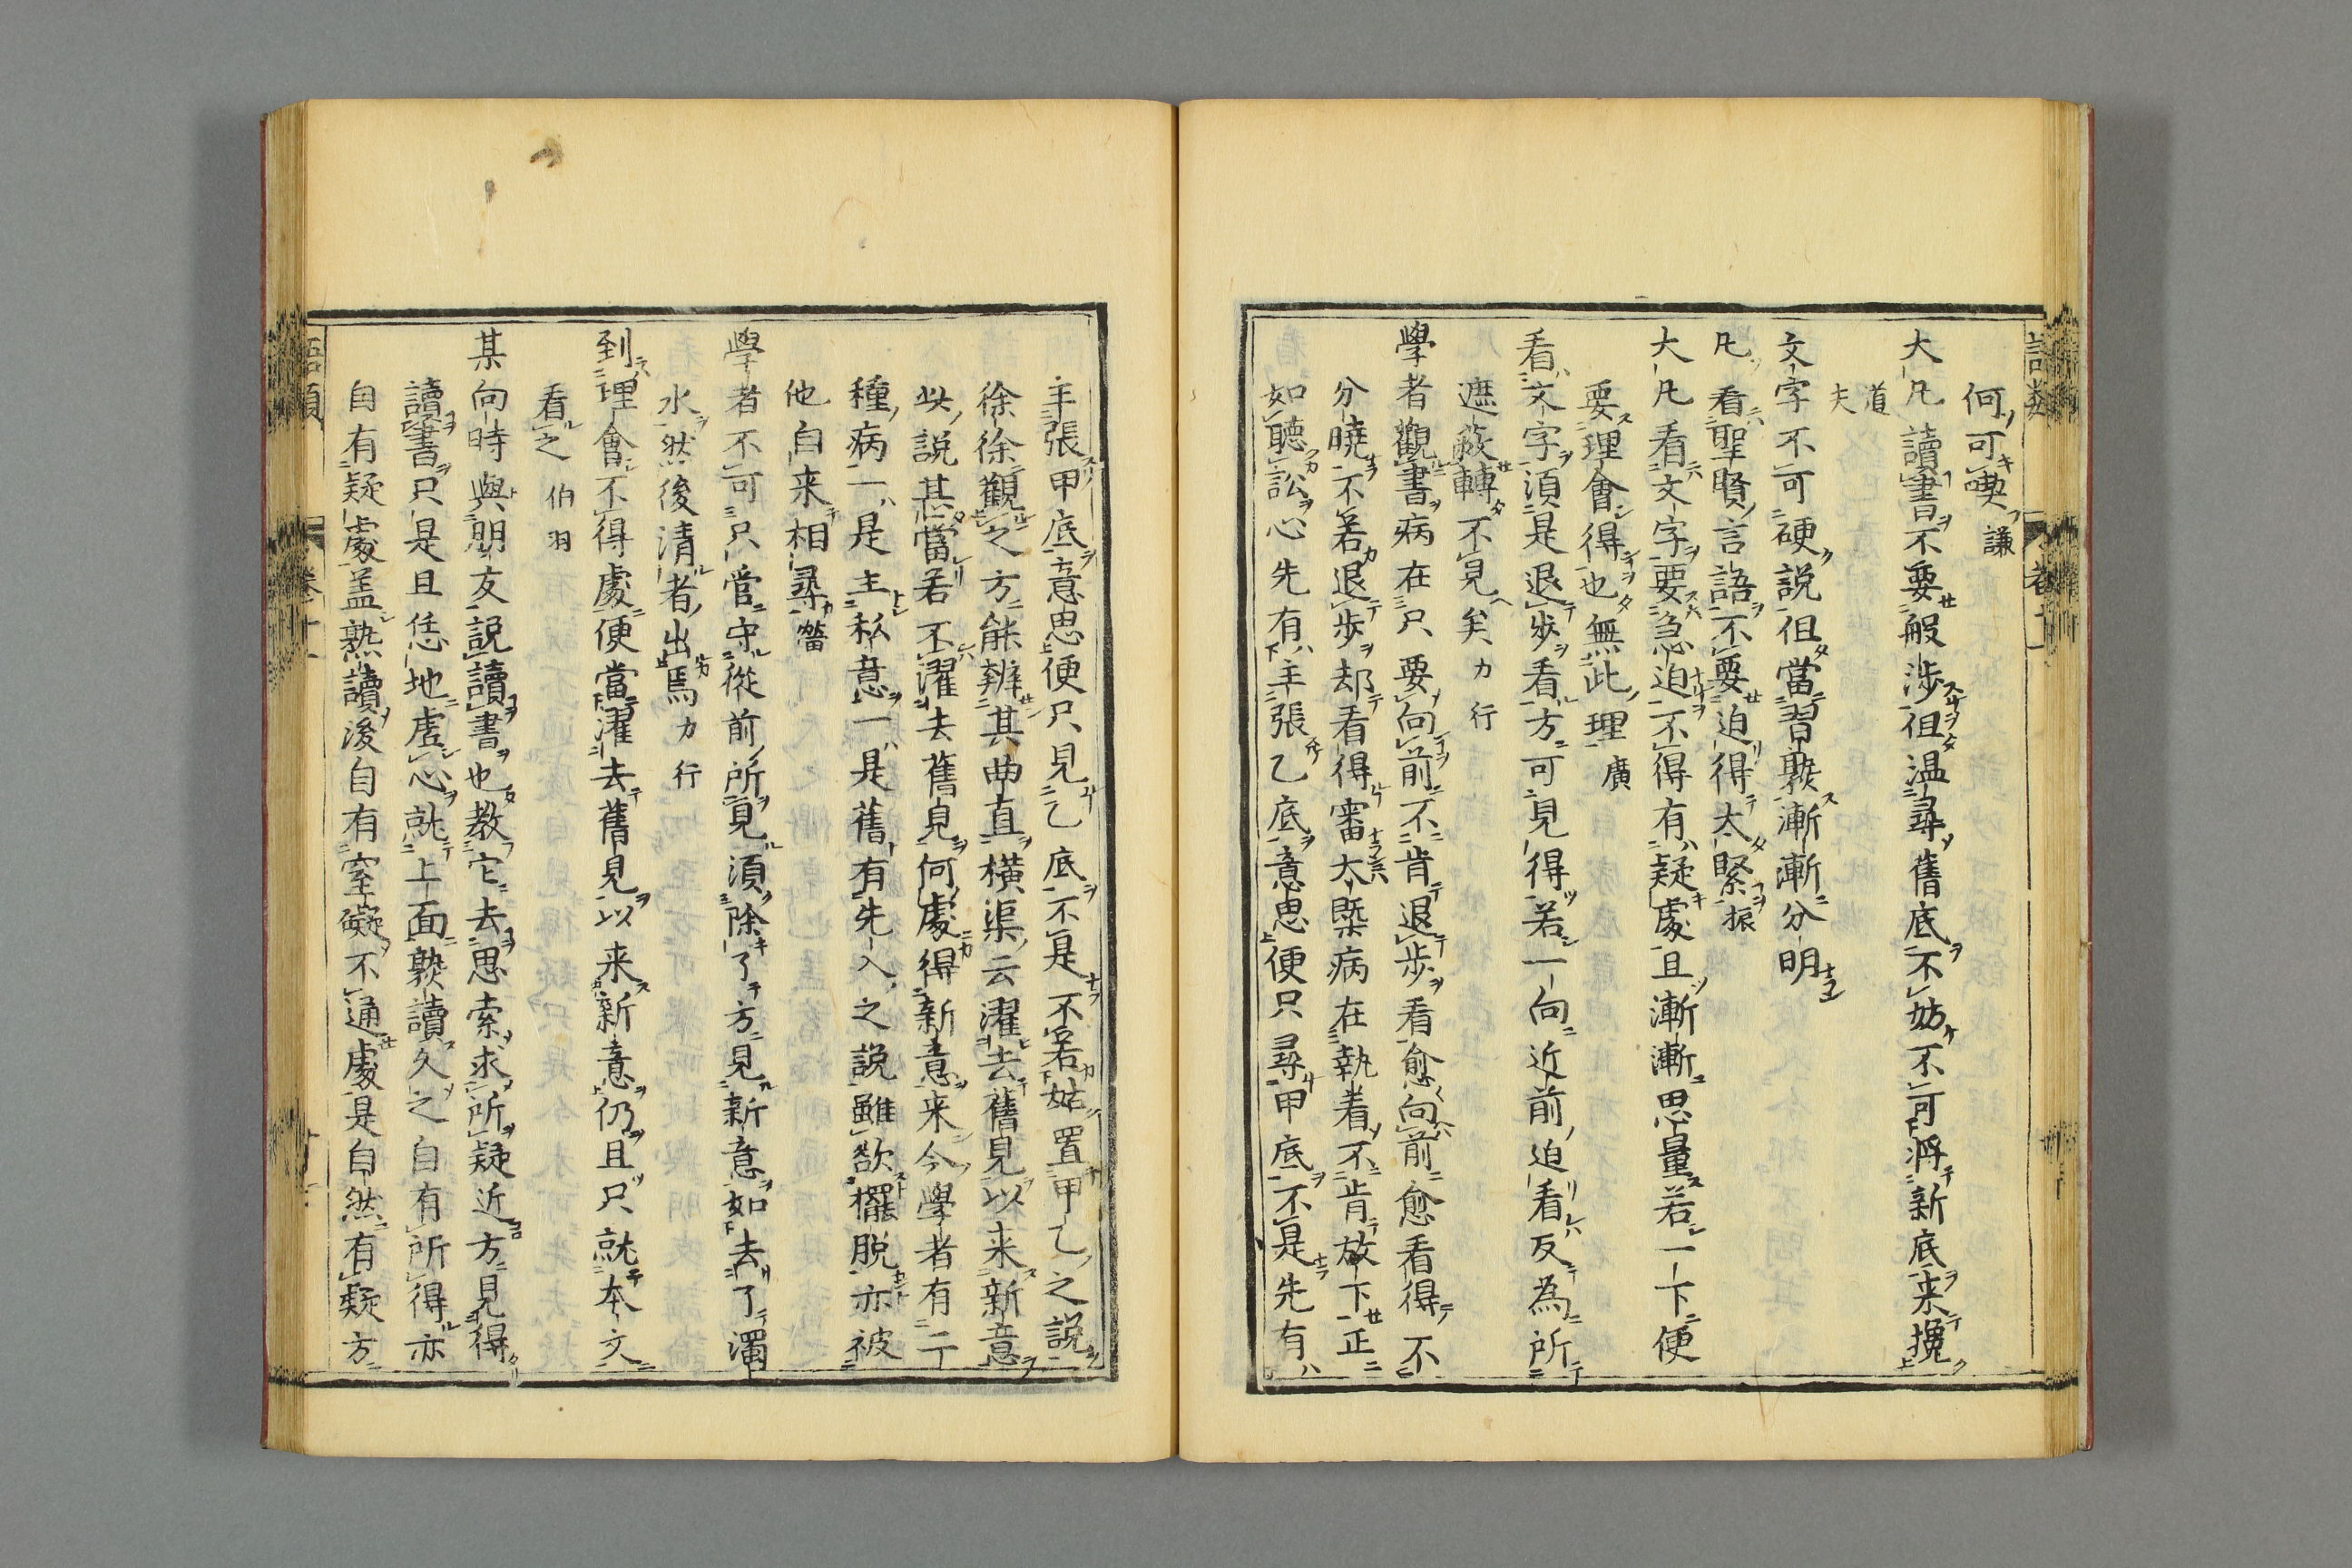 何可喫謙
大凡讀書不要般涉但温尋舊底不妨不可將新底來攙
道夫
文字不可硬說但當習熟漸漸分明
凡看聖賢言語不要迫得太緊振
大凡看文字要急迫不得有疑處且漸漸思量若一下便
要理會得也無此理廣
看文字須是退步看方可見得若一向近前迫看反為所
遮蔽轉不見矣力行
學者觀書病在只要向前不肯退步看愈向前愈看得不
分曉不若退步却看得審大槩病在執着不肯放下正
如聽訟心先有主張乙底意思便只尋甲底不是先有
主張甲底意思便只見乙底不是不若姑置甲乙之說
徐徐觀之方能辨其曲直橫渠云濯去舊見以来新意
此說甚當若不濯去舊見何處得新意来今學者有二
種病一是主私意一是舊有先入之說雖欲擺脫亦被
他自来相尋㽦
學者不可只管守從前所見須除了方見新意如去了濁
水然後清者出焉力行
到理會不得處便當濯去舊見以来新意仍且只就本文
看之伯羽
某向時與朋友說讀書也教它去思索求所疑近方見得
讀書只是且恁地虚心就上面熟讀久之自有所得亦
自有疑處盖熟讀後自有窒礙不通處是自然有疑方